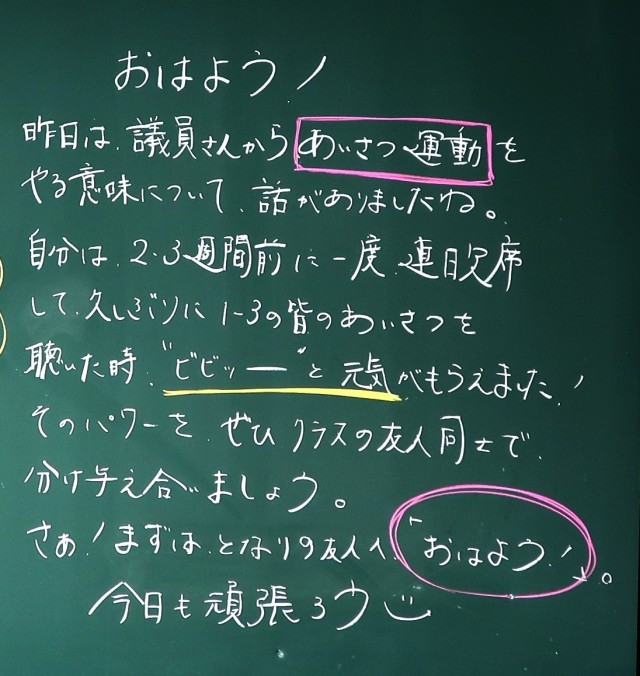 おはよう!
昨日は、議員さんから あいさつ運動 を
やる意味について、話がありましたね。
自分は、2・3週間前に一度、連日欠席
して、久しぶりに 1-3の皆のあいさつを
聴いた時、"ビビッー"と 元気がもらえました!
そのパワーを、ぜひ クラスの友人同士で、
分け与え合いましょう。
さぁ!まずは、となりの友人へ、「おはよう!」。
今日も頑張ろう